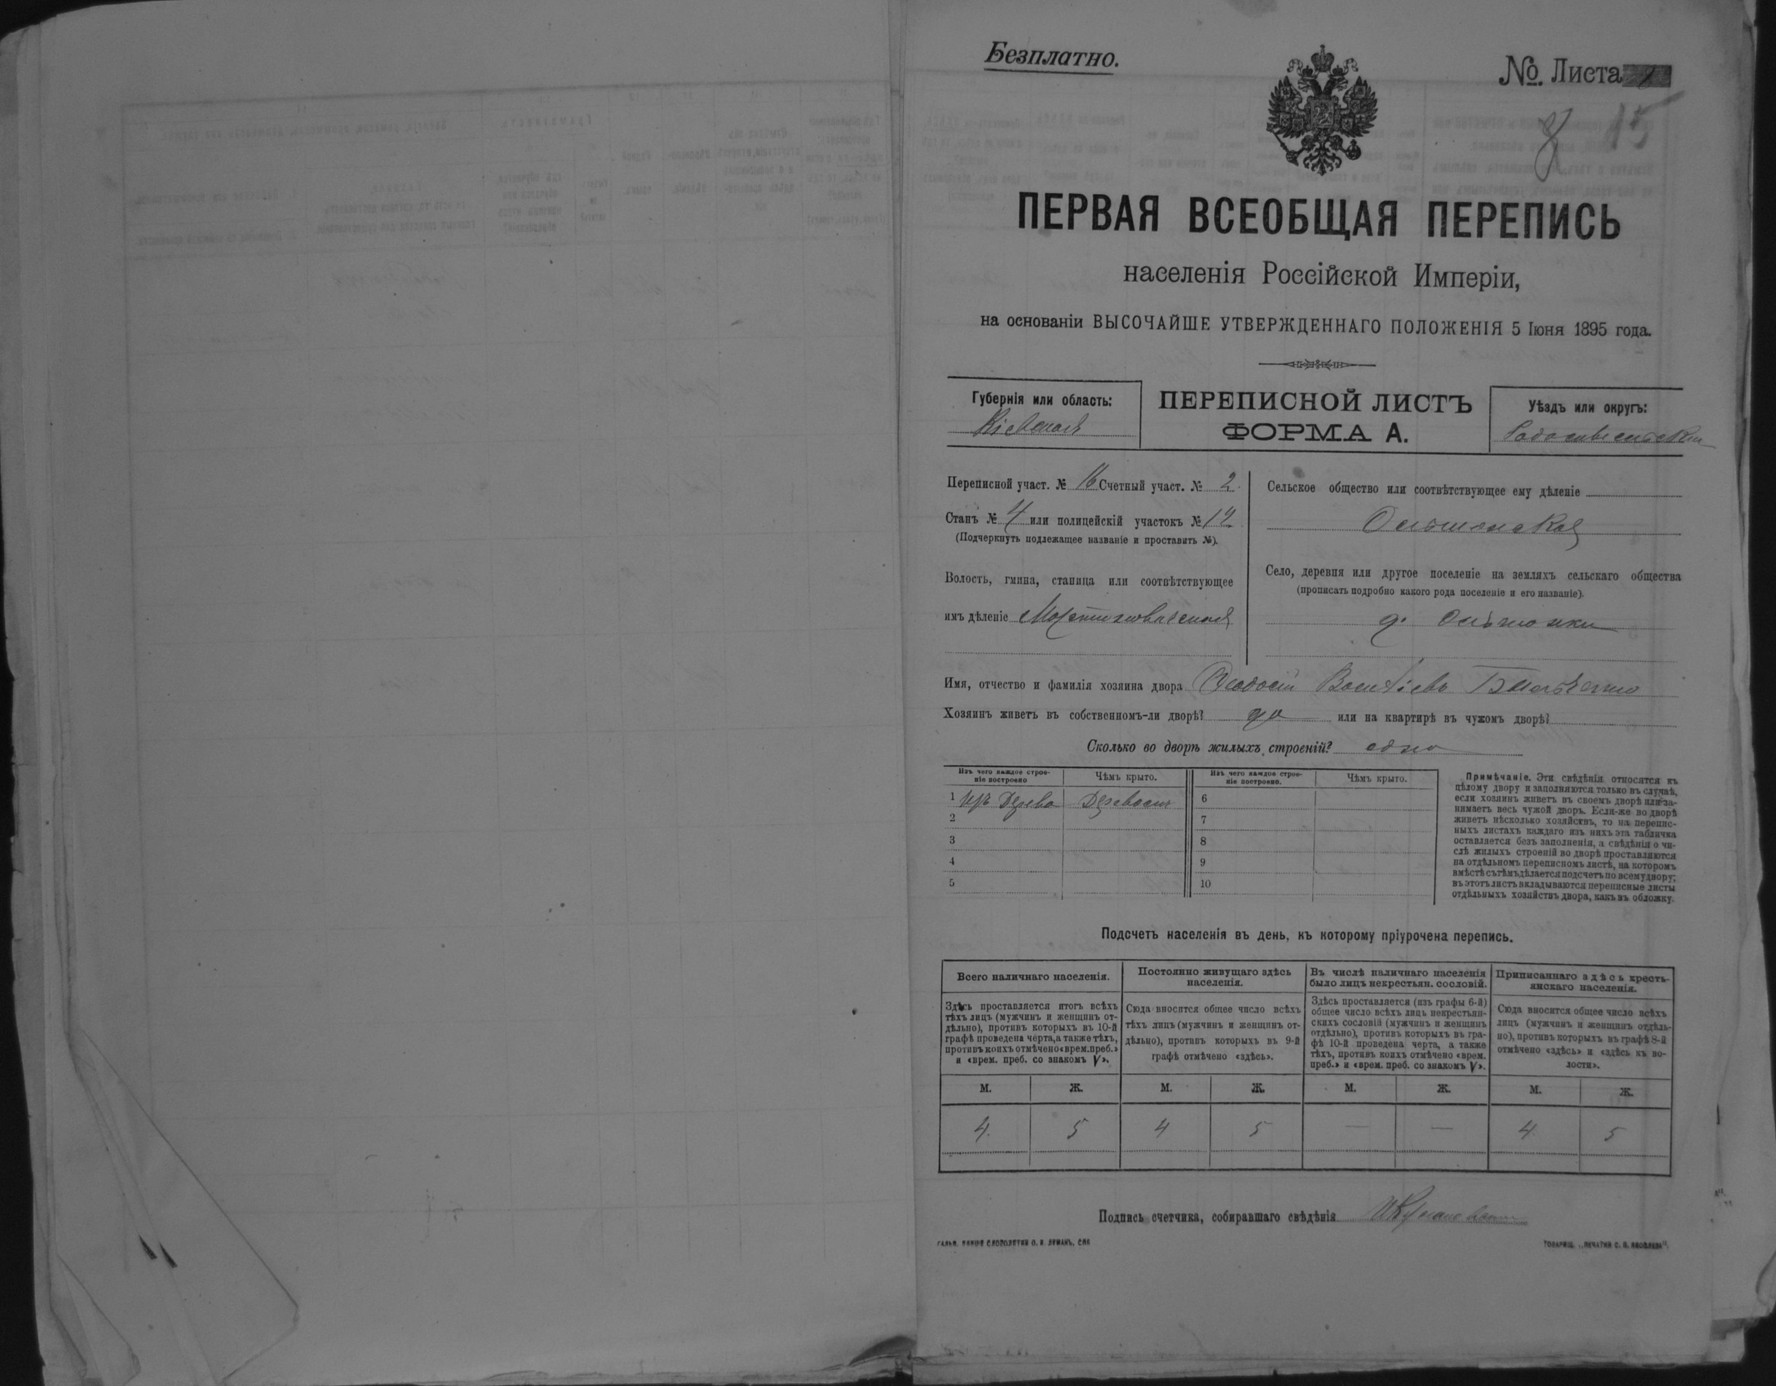 Безплатно.
№. Листа
8 15
ПЕРВАЯ ВСЕОБЩАЯ ПЕРЕПИСЬ
населенія Россійской Имперіи,
на основаніи ВЫСОЧАЙШЕ УТВЕРЖДЕННАГО ПОЛОЖЕНІЯ 5 Іюня 1895 года.
Губернія или область:
Кіевская
ПЕРЕПИСНОЙ ЛИСТЪ
ФОРМА А.
Уѣздъ или округъ:
Переписной участ. № 16 Счетный участ. № 2
Станъ № 4 или полицейскій участокъ № 12
(Подчеркнуть подлежащее названіе и проставить №).
Волость, гмина, станица или соотвѣтствующее
имъ дѣленіе
Сельское общество или соотвѣтствующее ему дѣленіе
Село, деревня или другое поселеніе на земляхъ сельскаго общества
(прописать подробно какого рода поселеніе и его названіе).
д.
Имя, отчество и фамилія хозяина двора Феодосій
Хозяинъ живетъ въ собственномъ-ли дворѣ? да или на квартирѣ въ чужомъ дворѣ?
Сколько во дворѣ жилыхъ строеній? одно
Изъ чего каждое строе-
ніе построено
Чѣмъ крыто.
Изъ чего каждое строе-
ніе построено.
Чѣмъ крыто.
1 изъ дерева
2
3
4
5
6
7
8
9
10
Примѣчаніе. Эти свѣдѣнія относятся къ
цѣлому двору и заполняются только въ случаѣ,
если хозяинъ живетъ въ своемъ дворѣ или за-
нимаетъ весь чужой дворъ. Если-же во дворѣ
живетъ нѣсколько хозяйствъ, то на перепис-
ныхъ листахъ каждаго изъ нихъ эта табличка
оставляется безъ заполненія, а свѣдѣнія о чи-
слѣ жилыхъ строеній во дворѣ проставляются
на отдѣльномъ переписномъ листѣ, на которомъ
вмѣстѣ съ тѣмъ дѣлается подсчетъ по всему двору;
въ этотъ листъ вкладываются переписные листы
отдѣльныхъ хозяйствъ двора, какъ въ обложку.
Подсчетъ населенія въ день, къ которому пріурочена перепись.
Всего наличнаго населенія.
Здѣсь проставляется итогъ всѣхъ
тѣхъ лицъ (мужчинъ и женщинъ от-
дѣльно), противъ которыхъ въ 10-й
графѣ проведена черта, а также тѣхъ,
противъ коихъ отмѣчено «врем. преб.»
и «врем. преб. со знакомъ V».
Постоянно живущаго здѣсь
населенія.
Сюда вносится общее число всѣхъ
тѣхъ лицъ (мужчинъ и женщинъ от-
дѣльно), противъ которыхъ въ 9-й
графѣ отмѣчено «здѣсь».
Въ числѣ наличнаго населенія
было лицъ некрестьян. сословій.
Здѣсь проставляется (изъ графы 6-й)
общее число всѣхъ лицъ некрестьян-
скихъ сословій (мужчинъ и женщинъ
отдѣльно), противъ которыхъ въ гра-
фѣ 10-й проведена черта, а также
тѣхъ, противъ коихъ отмѣчено «врем.
преб.» и «врем. преб. со знакомъ V».
Приписаннаго здѣсь кресть-
янскаго населенія.
Сюда вносится общее число всѣхъ
лицъ (мужчинъ и женщинъ отдѣль-
но), противъ которыхъ въ графѣ 8-й
отмѣчено «здѣсь» и «здѣсь въ во-
лости».
М. Ж. М. Ж. М. Ж. М. Ж.
4 5 4 5 — — 4 5
Подпись счетчика, собиравшаго свѣдѣнія